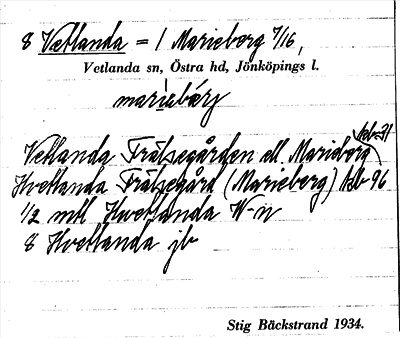 8 Vetlanda = 1 Marieberg 7/16,
Vetlanda sn, Östra hd, Jönköpings l.
mariebærj
Vetlanda Frälsegården ell. Marieberg
Hvetlanda Frälsegård (Marieberg) Jeb 96
1/2 mtl Hwetlanda W-n
8 Hvetlanda jb
Stig Bäckstrand 1934.